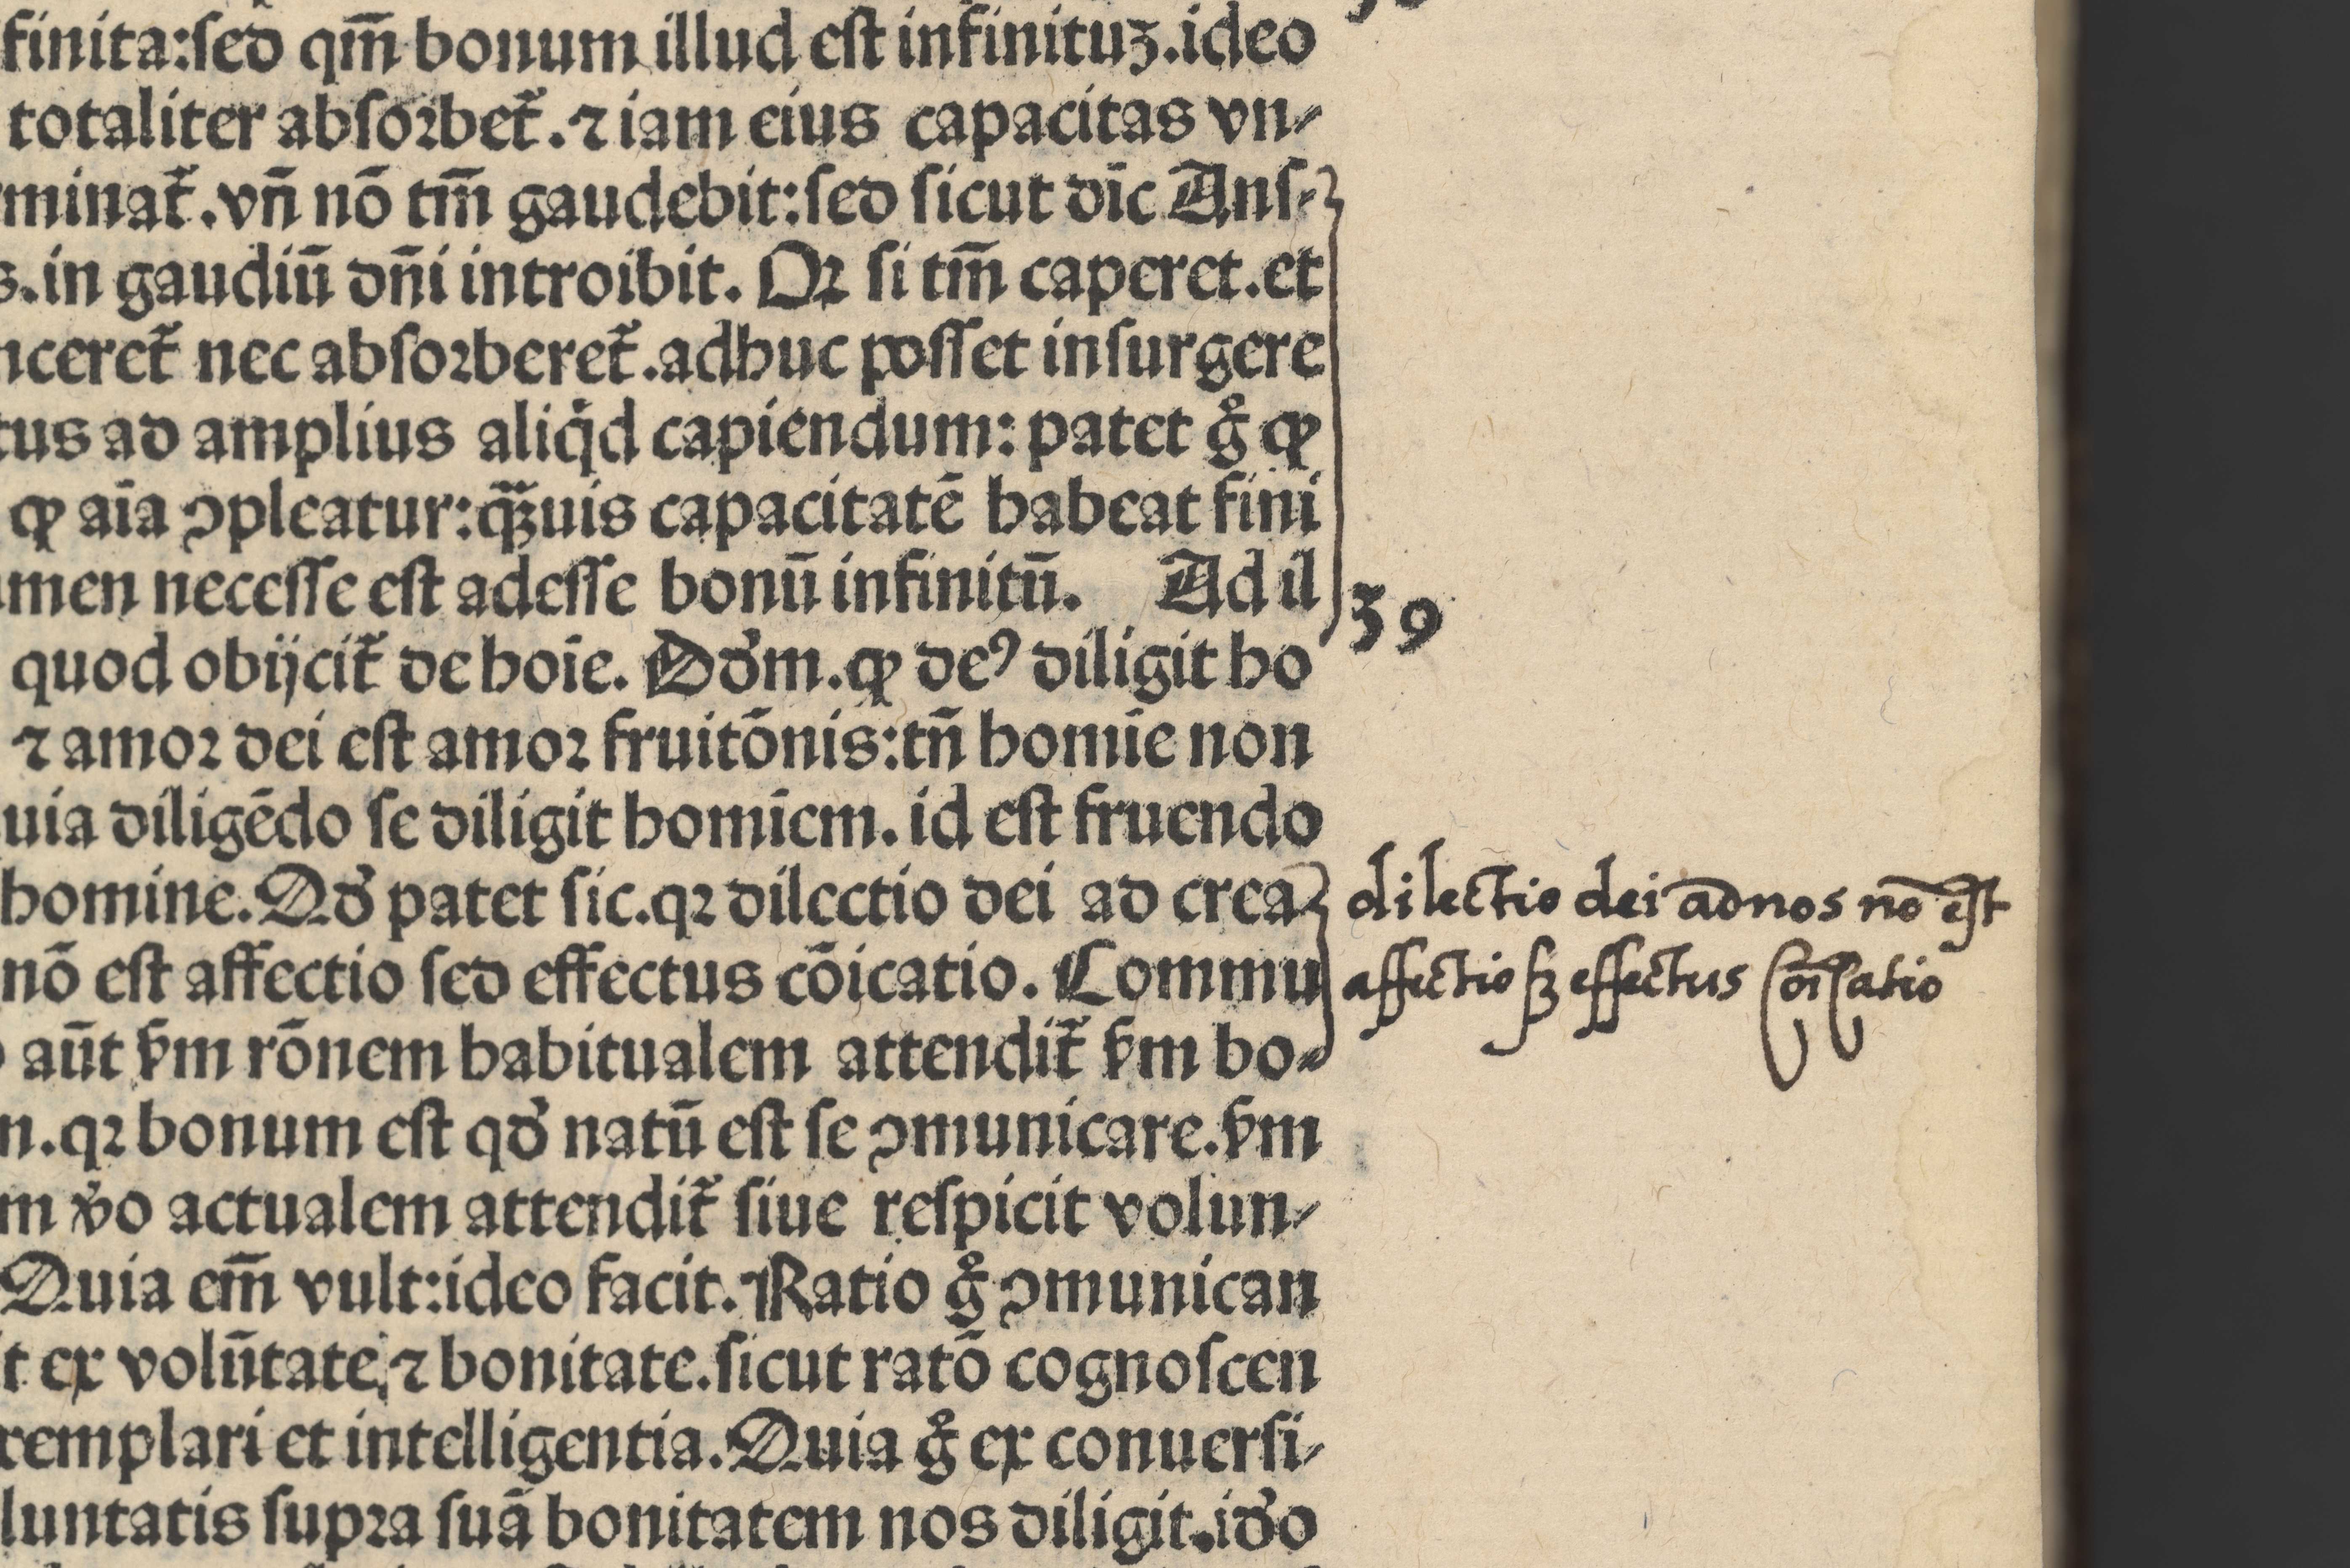 finita:ſed qm̄ bonum illud eſt infinituꝫ.ideo
totaliter abſoꝛbet᷑.⁊ iam eius capacitas vn⸗
minat᷑.vn̄ nō tm̄ gaudebit:ſed ſicut dic̄ Anſ⸗
s.in gaudiū dn̄i introibit. Qꝛ ſi tm̄ caperet.et
nceret᷑ nec abſoꝛberet᷑.adhuc poſſet inſurgere
tus ad amplius aliqͥd capiendum: patet gͦ ꝙ
ꝙ aīa ꝯpleatur:qꝫ̄uis capacitatē habeat fini
men neceſſe eſt adeſſe bonū infinitū. Ad il
39
quod obijcit᷑ de hoīe. Dd̓m.ꝙ deꝰ diligit ho
⁊ amoꝛ dei eſt amoꝛ fruitōnis:tn̄ homīe non
uia diligēdo ſe diligit homīem. id eſt fruendo
homine.Qd̓ patet ſic.qꝛ dilectio dei ad crea⸗
nō eſt affectio ſed effectus cōicatio. Commu
dilectio dei ad nos nō eſt
affectio ſꝫ effectus cōicatio
aūt ẜm rōnem habitualem attendit᷑ ẜm bo⸗
n.qꝛ bonum eſt qd̓ natū eſt ſe ꝯmunicare.ẜm
m v̓o actualem attendit᷑ ſiue reſpicit volun⸗
Quia em̄ vult:ideo facit.Ratio gͦ ꝯmunican
t ex volūtate ⁊ bonitate.ſicut ratō cognoſcen
xemplari et intelligentia.Quia gͦ ex conuerſi⸗
luntatis ſupꝛa ſuā bonitatem nos diligit.id̓o